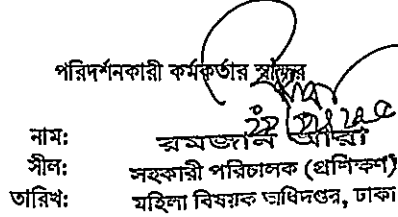 পরিদর্শনকারী কর্মকর্তার স্বাক্ষর
নাম: রমজান আরা
সীল: সহকারী পরিচালক (প্রশিক্ষণ)
তারিখ: মহিলা বিষয়ক অধিদপ্তর, ঢাকা